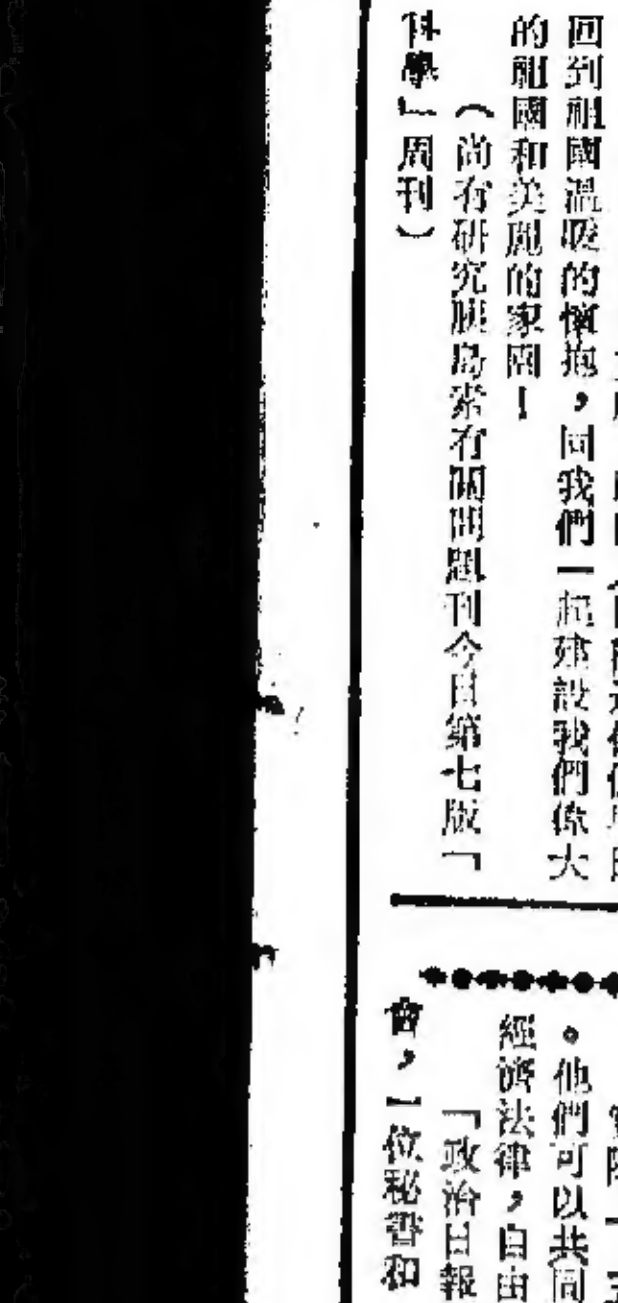 回到祖國温暖的懷抱，同我們一起建設我們偉大
的祖國和美麗的家園！
（尚有研究胰島素有關問題刊今日第七版「
科學」周刊）
。他們可以共同
經濟法律，自由
「政治日報
會，一位秘書和